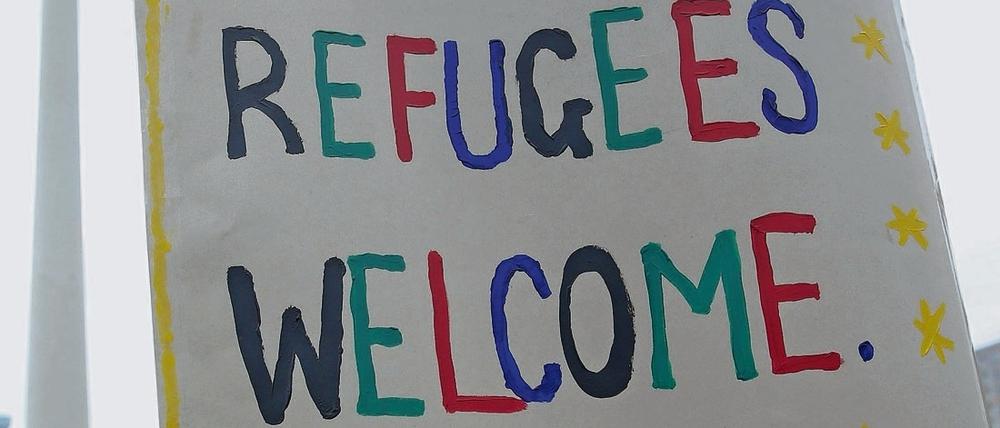 REFUGEES
WELCOME.